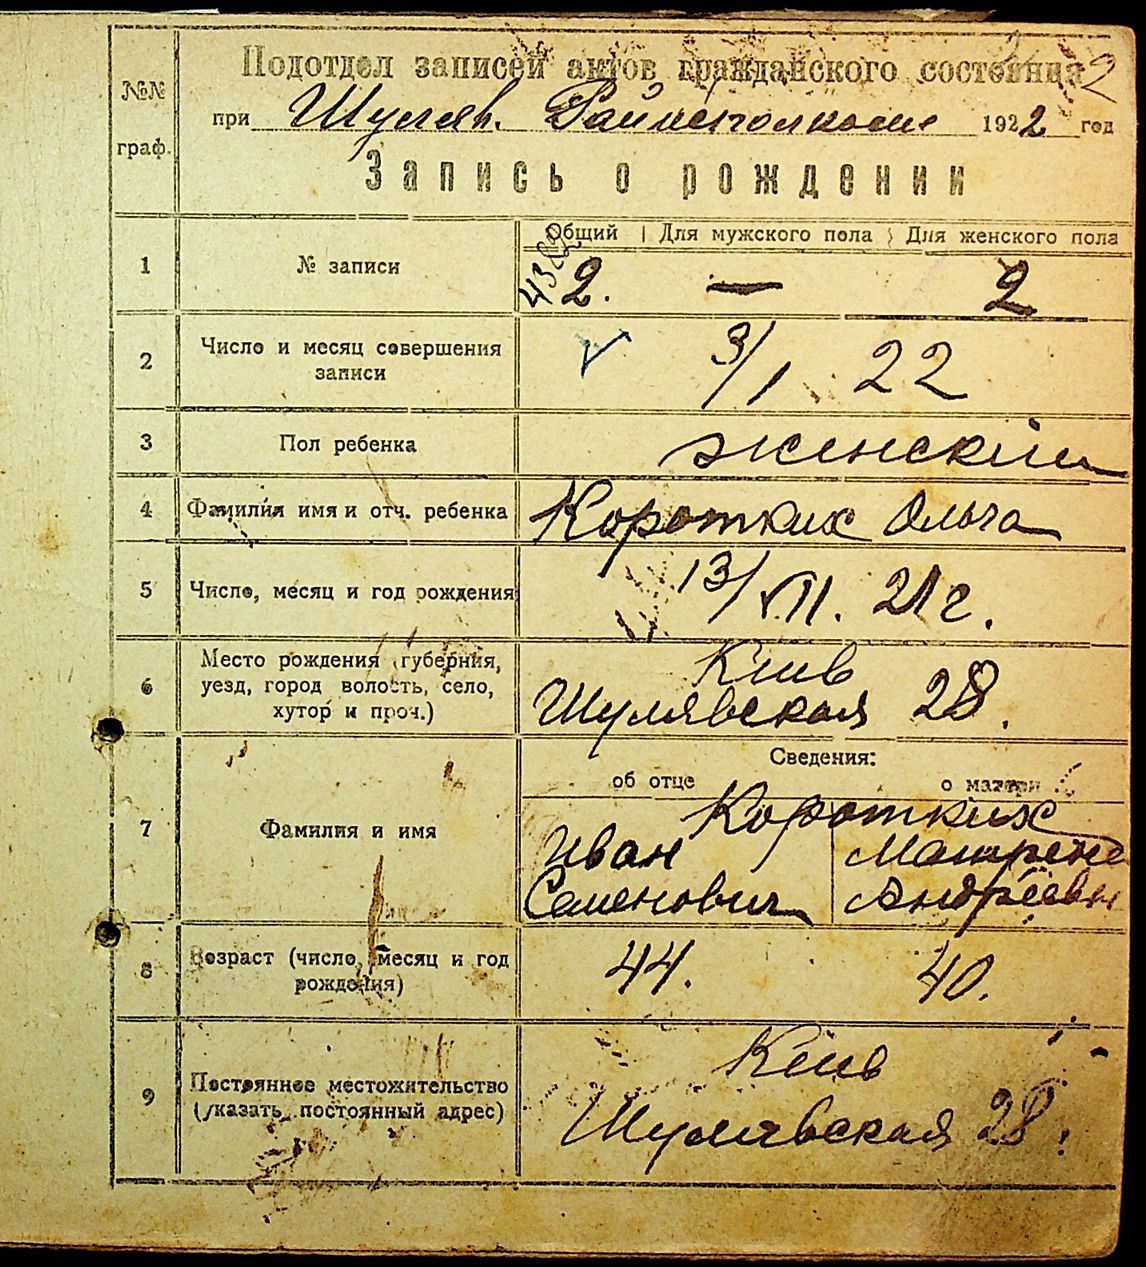 Подотдел записей актов гражданского состояния
2
№№ граф.
при Шуляв. Райисполкоме 1922 год
Запись о рождении
Общий | Для мужского пола | Для женского пола
1 № записи 2. — 2
2 Число и месяц совершения
записи
3/I 22
3 Пол ребенка женский
4 Фамилия имя и отч. ребенка Коротких Ольга
5 Число, месяц и год рождения 13/VII. 21 г.
6 Место рождения (губерния,
уезд, город волость, село,
хутор и проч.)
Киев
Шулявская 28.
Сведения:
об отце о матери
7 Фамилия и имя
Коротких
Иван Матрена
Семенович Андреевн
8 Возраст (число, месяц и год
рождения)
44. 40.
9 Постоянное местожительство
(указать постоянный адрес)
Киев
Шулявская 28.